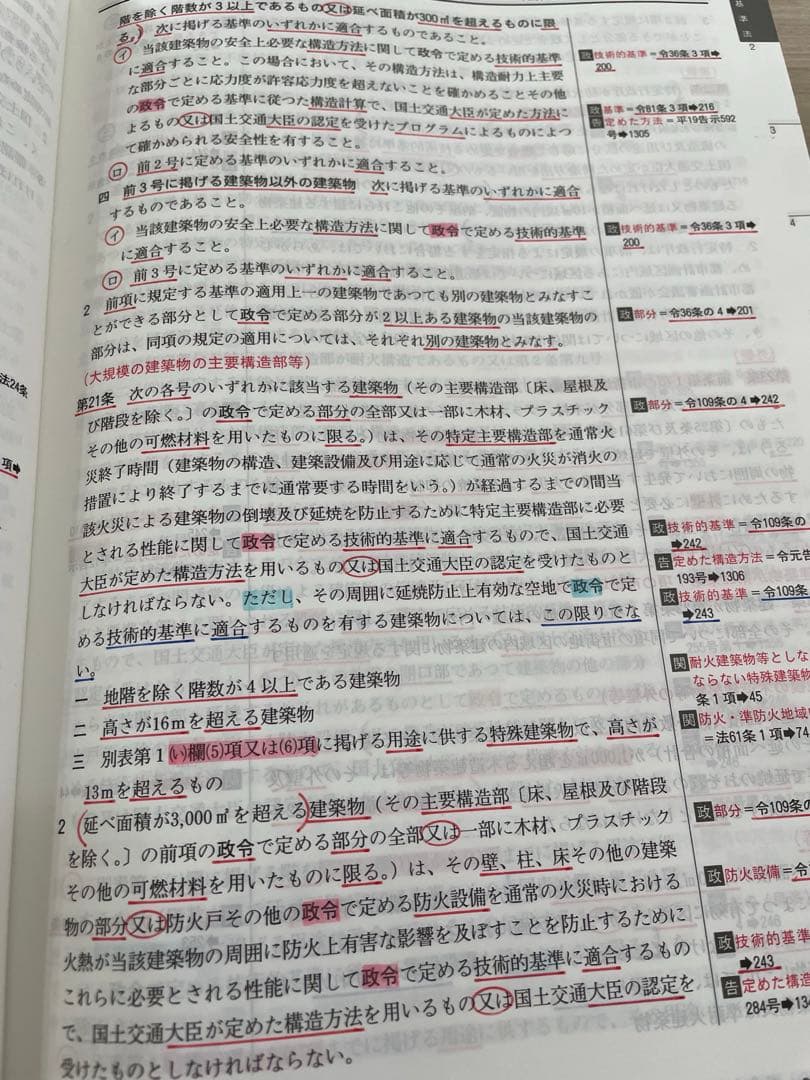 階を除く階数が3以上であるもの又は延べ面積が300㎡を超えるものに限
る。) 次に掲げる基準のいずれかに適合するものであること。
イ 当該建築物の安全上必要な構造方法に関して政令で定める技術的基準
に適合すること。この場合において、その構造方法は、構造耐力上主要
な部分ごとに応力度が許容応力度を超えないことを確かめることその他
の政令で定める基準に従つた構造計算で、国土交通大臣が定めた方法に
よるもの又は国土交通大臣の認定を受けたプログラムによるものによつ
て確かめられる安全性を有すること。
ロ 前2号に定める基準のいずれかに適合すること。
四 前3号に掲げる建築物以外の建築物 次に掲げる基準のいずれかに適合
するものであること。
イ 当該建築物の安全上必要な構造方法に関して政令で定める技術的基準
に適合すること。
ロ 前3号に定める基準のいずれかに適合すること。
2 前項に規定する基準の適用上一の建築物であつても別の建築物とみなすこ
とができる部分として政令で定める部分が2以上ある建築物の当該建築物の
部分は、同項の規定の適用については、それぞれ別の建築物とみなす。
(大規模の建築物の主要構造部等)
第21条 次の各号のいずれかに該当する建築物(その主要構造部〔床、屋根及
び階段を除く。〕の政令で定める部分の全部又は一部に木材、プラスチック
その他の可燃材料を用いたものに限る。)は、その特定主要構造部を通常火
災終了時間(建築物の構造、建築設備及び用途に応じて通常の火災が消火の
措置により終了するまでに通常要する時間をいう。)が経過するまでの間当
該火災による建築物の倒壊及び延焼を防止するために特定主要構造部に必要
とされる性能に関して政令で定める技術的基準に適合するもので、国土交通
大臣が定めた構造方法を用いるもの又は国土交通大臣の認定を受けたものと
しなければならない。ただし、その周囲に延焼防止上有効な空地で政令で定
める技術的基準に適合するものを有する建築物については、この限りでな
い。
一 地階を除く階数が4以上である建築物
二 高さが16mを超える建築物
三 別表第1(い)欄(5)項又は(6)項に掲げる用途に供する特殊建築物で、高さが
13mを超えるもの
2 (延べ面積が3,000㎡を超える)建築物(その主要構造部〔床、屋根及び階段
を除く。〕の前項の政令で定める部分の全部又は一部に木材、プラスチック
その他の可燃材料を用いたものに限る。)は、その壁、柱、床その他の建築
物の部分又は防火戸その他の政令で定める防火設備を通常の火災時における
火熱が当該建築物の周囲に防火上有害な影響を及ぼすことを防止するために
これらに必要とされる性能に関して政令で定める技術的基準に適合するもの
で、国土交通大臣が定めた構造方法を用いるもの又は国土交通大臣の認定を
受けたものとしなければならない。
基準法
2
政 技術的基準=令36条3項➡
200
政 基準=令81条3項➡216
告 定めた方法=平19告示592
号➡1305
3
政 技術的基準=令36条3項➡
200
4
政 部分=令36条の4➡201
政 部分=令109条の4➡242
政 技術的基準=令109条の
➡242
告 定めた構造方法=令元告
193号➡1306
政 技術的基準=令109条
➡243
関 耐火建築物等としな
ならない特殊建築物
条1項➡45
関 防火・準防火地域
=法61条1項➡74
政 部分=令109条
政 防火設備=令
政 技術的基準
➡243
告 定めた構造
284号➡
法24条
項➡